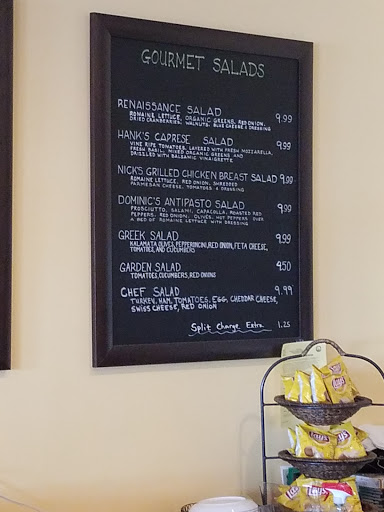 GOURMET SALADS
RENAISSANCE SALAD 9.99
ROMAINE LETTUCE, ORGANIC GREENS, RED ONION,
DRIED CRANBERRIES, WALNUTS, BLUE CHEESE & DRESSING
HANK'S CAPRESE SALAD 9.99
VINE RIPE TOMATOES, LAYERED WITH FRESH MOZZARELLA,
FRESH BASIL, MIXED ORGANIC GREENS AND
DRIZZLED WITH BALSAMIC VINAIGRETTE
NICK'S GRILLED CHICKEN BREAST SALAD 9.99
ROMAINE LETTUCE, RED ONION, SHREDDED
PARMESAN CHEESE, TOMATOES & DRESSING
DOMINIC'S ANTIPASTO SALAD 9.99
PROSCIUTTO, SALAMI, CAPACOLLA, ROASTED RED
PEPPERS, RED ONION, OLIVES, HOT PEPPERS OVER
A BED OF ROMAINE LETTUCE WITH DRESSING
GREEK SALAD 9.99
KALAMATA OLIVES, PEPPERONCINI, RED ONION, FETA CHEESE,
TOMATOES, AND CUCUMBERS
GARDEN SALAD 4.50
TOMATOES, CUCUMBERS, RED ONIONS
CHEF SALAD 9.99
TURKEY, HAM, TOMATOES, EGG, CHEDDAR CHEESE,
SWISS CHEESE, RED ONION
Split Charge Extra 1.25
Lay's
Lay's
Lay's